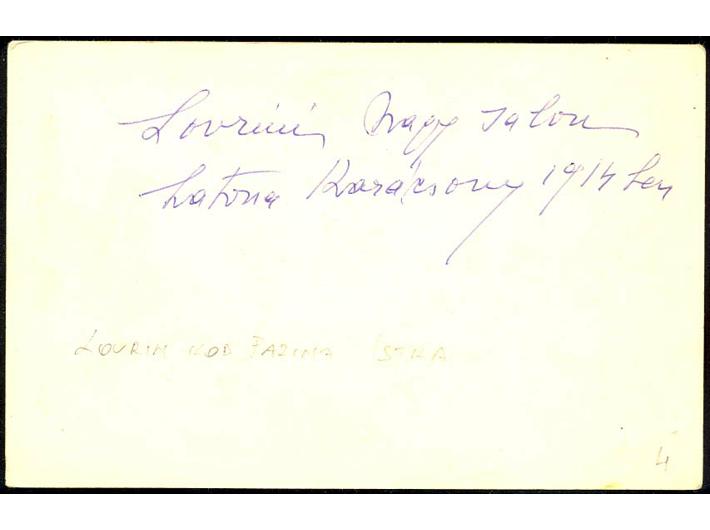 Lovrini Nagy salon
Latona Karácsony 1914 ben
LOVRIN KOD PAZINA ISTRA
4